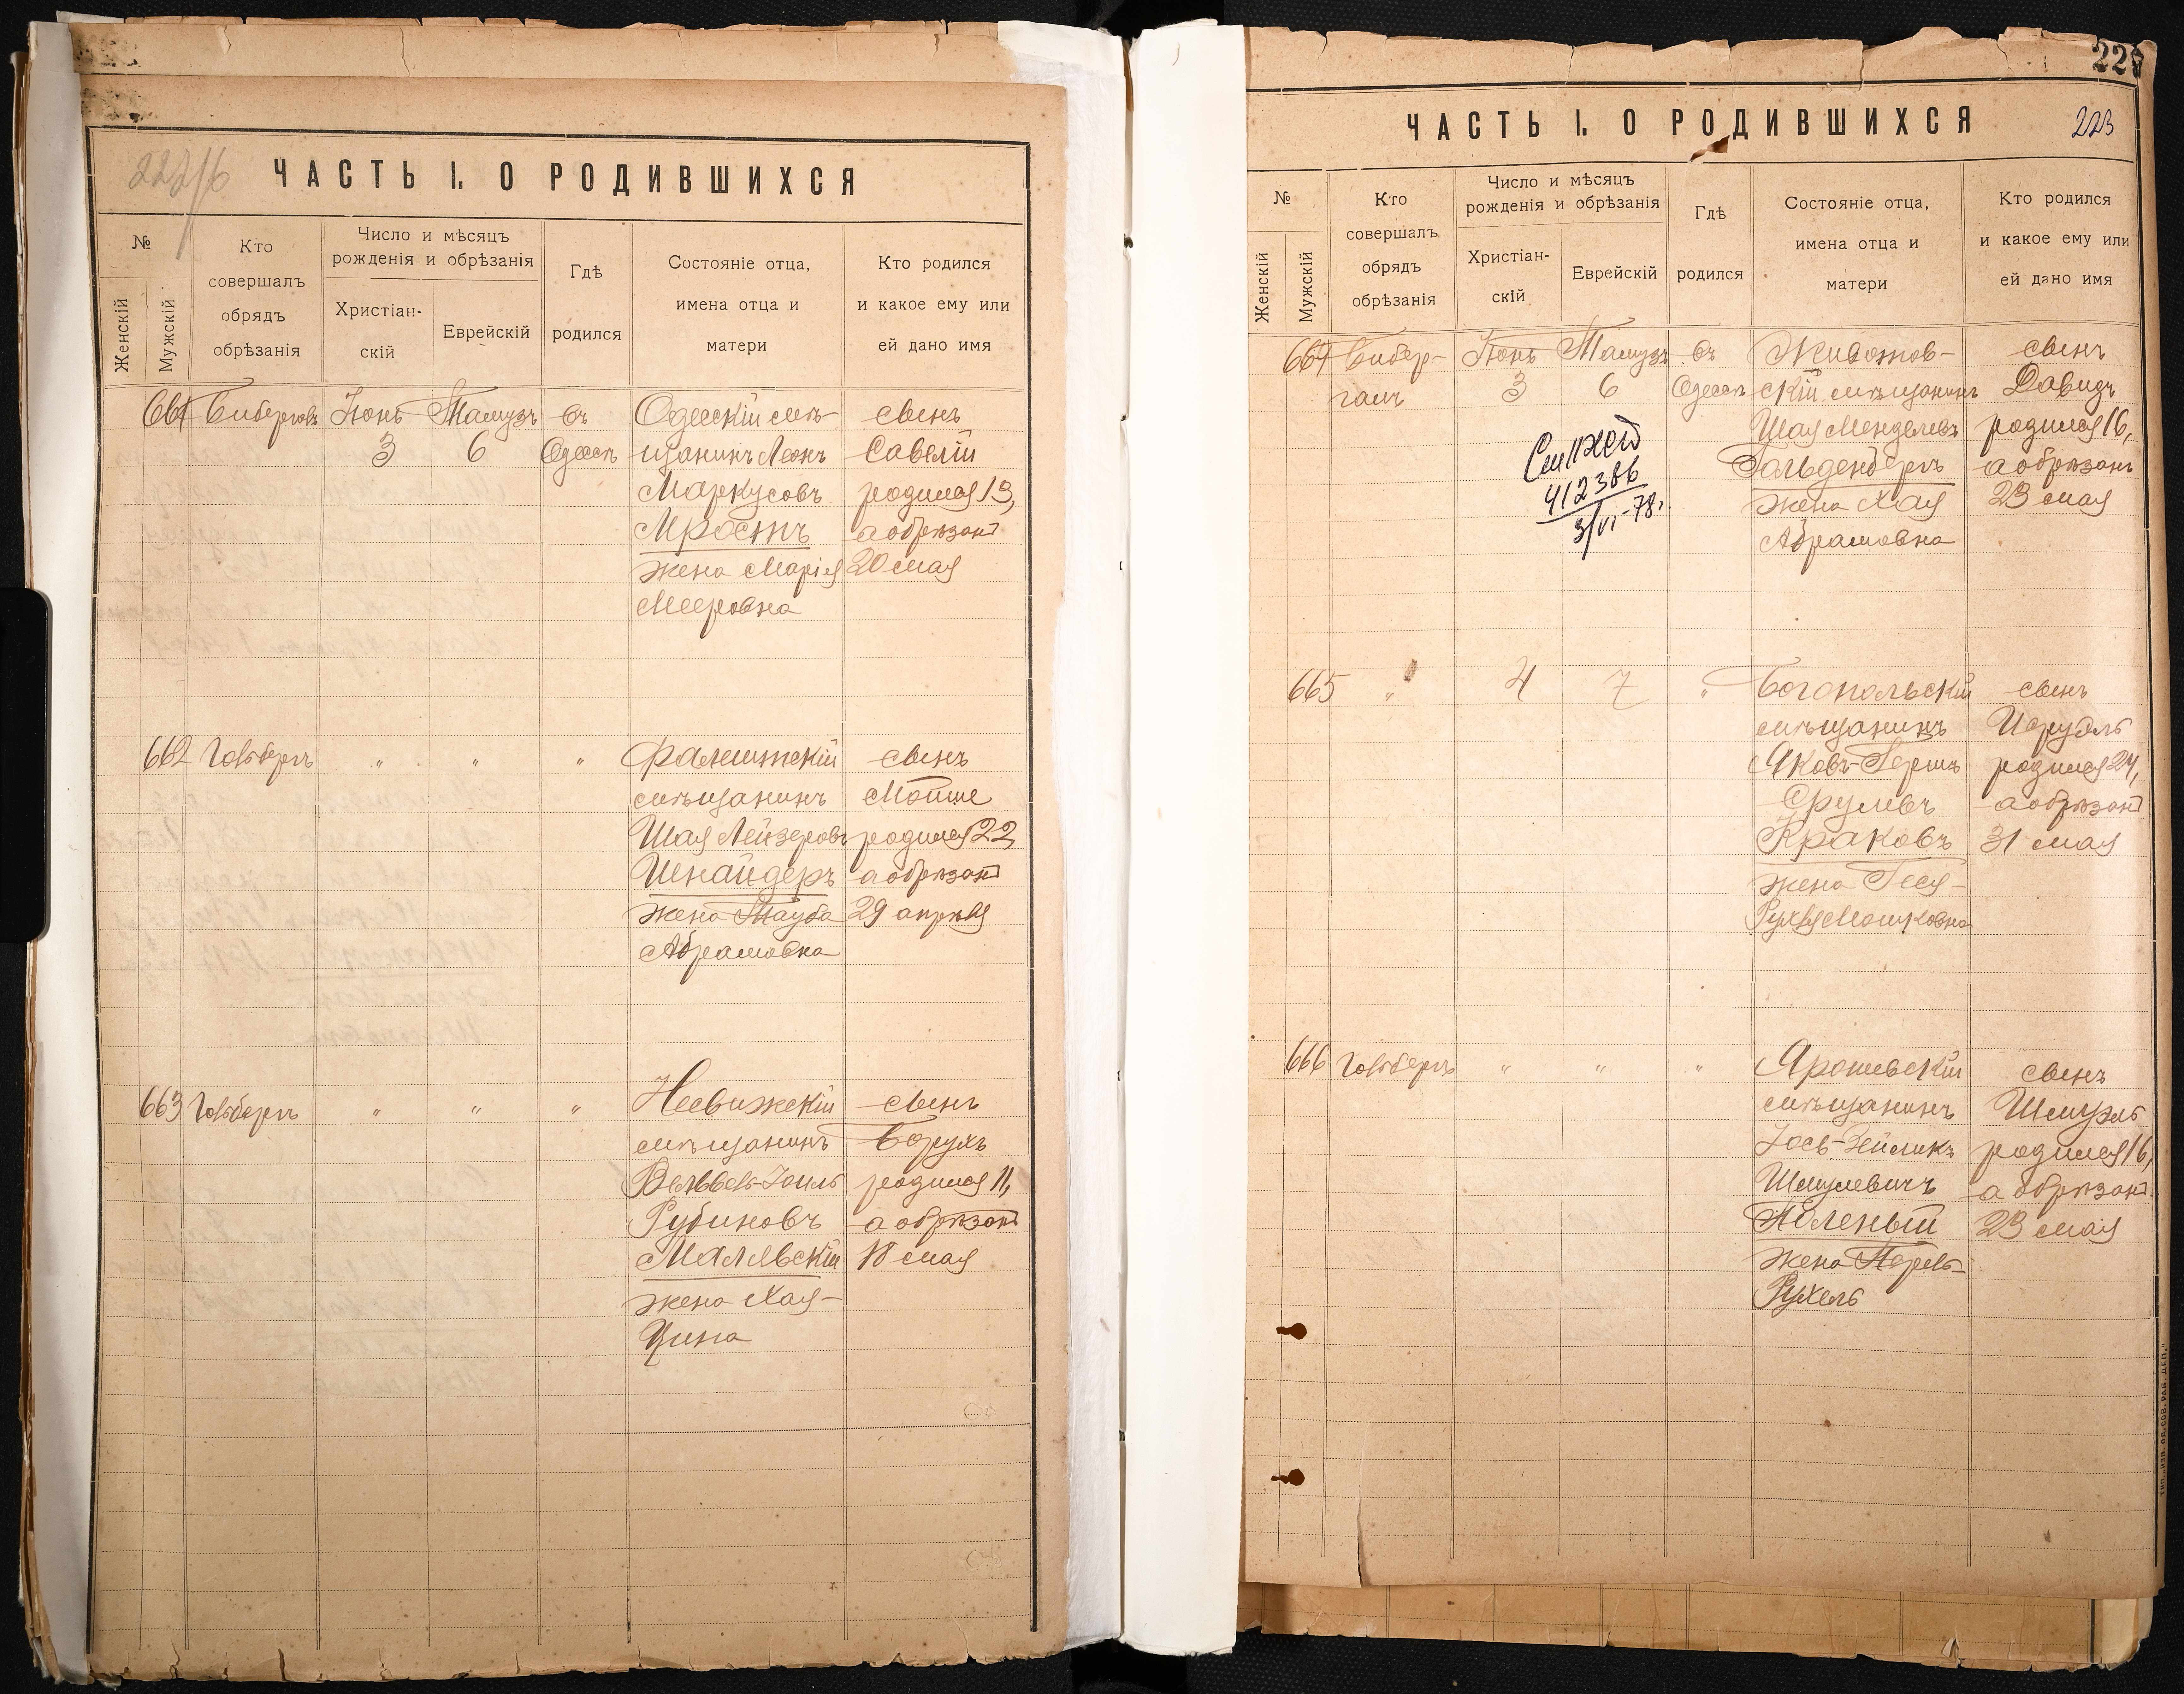 222/б
ЧАСТЬ I. О РОДИВШИХСЯ
№
Женскій
Мужскій
Кто
совершалъ
обрядъ
обрѣзанія
Число и мѣсяцъ
рожденія и обрѣзанія
Христіан-
скій
Еврейскій
Гдѣ
родился
Состояніе отца,
имена отца и
матери
Кто родился
и какое ему или
ей дано имя
661
Іюнь
3
Тамузъ
6
въ
Одессѣ
Одесскій мѣ-
щанинъ Леонъ
Маркусовъ
Мростъ
жена Марія
Мееровна
сынъ
Савелій
родился 13,
а обрѣзанъ
20 мая
662
Гольдбергъ
"
"
"
Фалештскій
мѣщанинъ
Шая Лейзеровъ
Шнайдеръ
жена Тауба
Абрамовна
сынъ
Мойше
родился 22,
а обрѣзанъ
29 апрѣля
663
Гольдбергъ
"
"
"
Несвижскій
мѣщанинъ
Вельвель-Іоиль
Рубиновъ
Малявскій
жена Хая-
Цина
сынъ
Борухъ
родился 11,
а обрѣзанъ
18 мая
223
ЧАСТЬ I. О РОДИВШИХСЯ
№
Женскій
Мужскій
Кто
совершалъ
обрядъ
обрѣзанія
Число и мѣсяцъ
рожденія и обрѣзанія
Христіан-
скій
Еврейскій
Гдѣ
родился
Состояніе отца,
имена отца и
матери
Кто родился
и какое ему или
ей дано имя
664
Бибер-
галъ
Іюнь
3
Тамузъ
6
въ
Одессѣ
412386
3/VI-78г.
Животов-
скій мѣщанинъ
Шая Менделевъ
Гольденбергъ
жена Хая
Абрамовна
сынъ
Давидъ
родился 16,
а обрѣзанъ
23 мая
665
"
4
7
"
Богопольскій
мѣщанинъ
Яковъ-Гершъ
Срулевъ
Краковъ
жена Геся-
Рухля Мошковна
сынъ
Исруэль
родился 24,
а обрѣзанъ
31 мая
666
Гольдбергъ
"
"
"
Ярошевскій
мѣщанинъ
Іось-Зейликъ
Шмулевичъ
жена Перель-
Рухель
сынъ
Шмуэль
родился 16,
а обрѣзанъ
23 мая